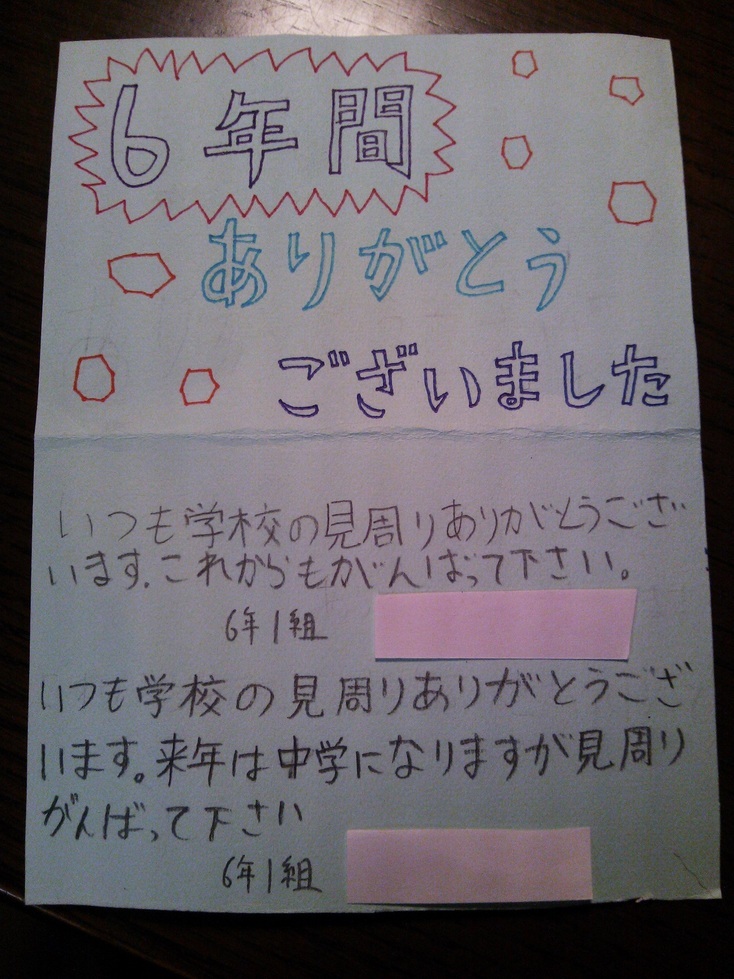 6年間
ありがとう
ございました
いつも学校の見周りありがとうござ
います。これからもがんばって下さい。
6年1組
いつも学校の見周りありがとうござ
います。来年は中学になりますが見周り
がんばって下さい
6年1組